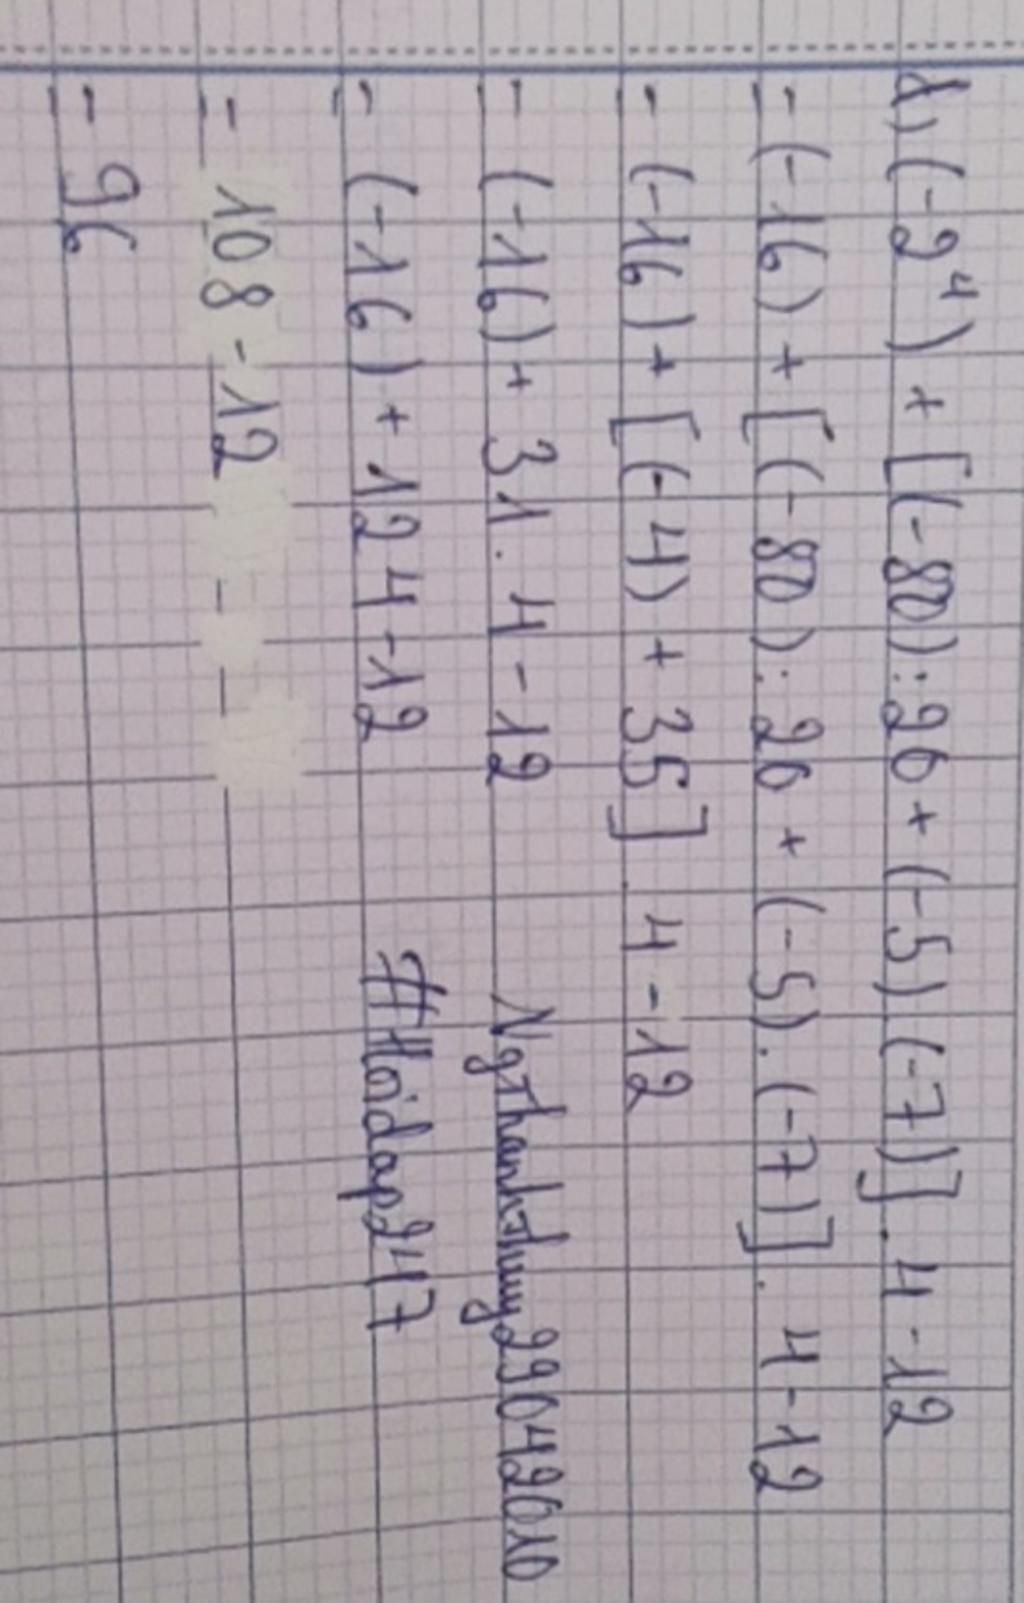 d, (-2⁴) + [(-80) : 20 + (-5).(-7)] . 4 - 12
= (-16) + [(-80) : 20 + (-5).(-7)] . 4 - 12
= (-16) + [(-4) + 35] . 4 - 12
= (-16) + 31 . 4 - 12
= (-16) + 124 - 12
= 108 - 12
= 96
Ngthanhthuy29042010
#Hoidap247